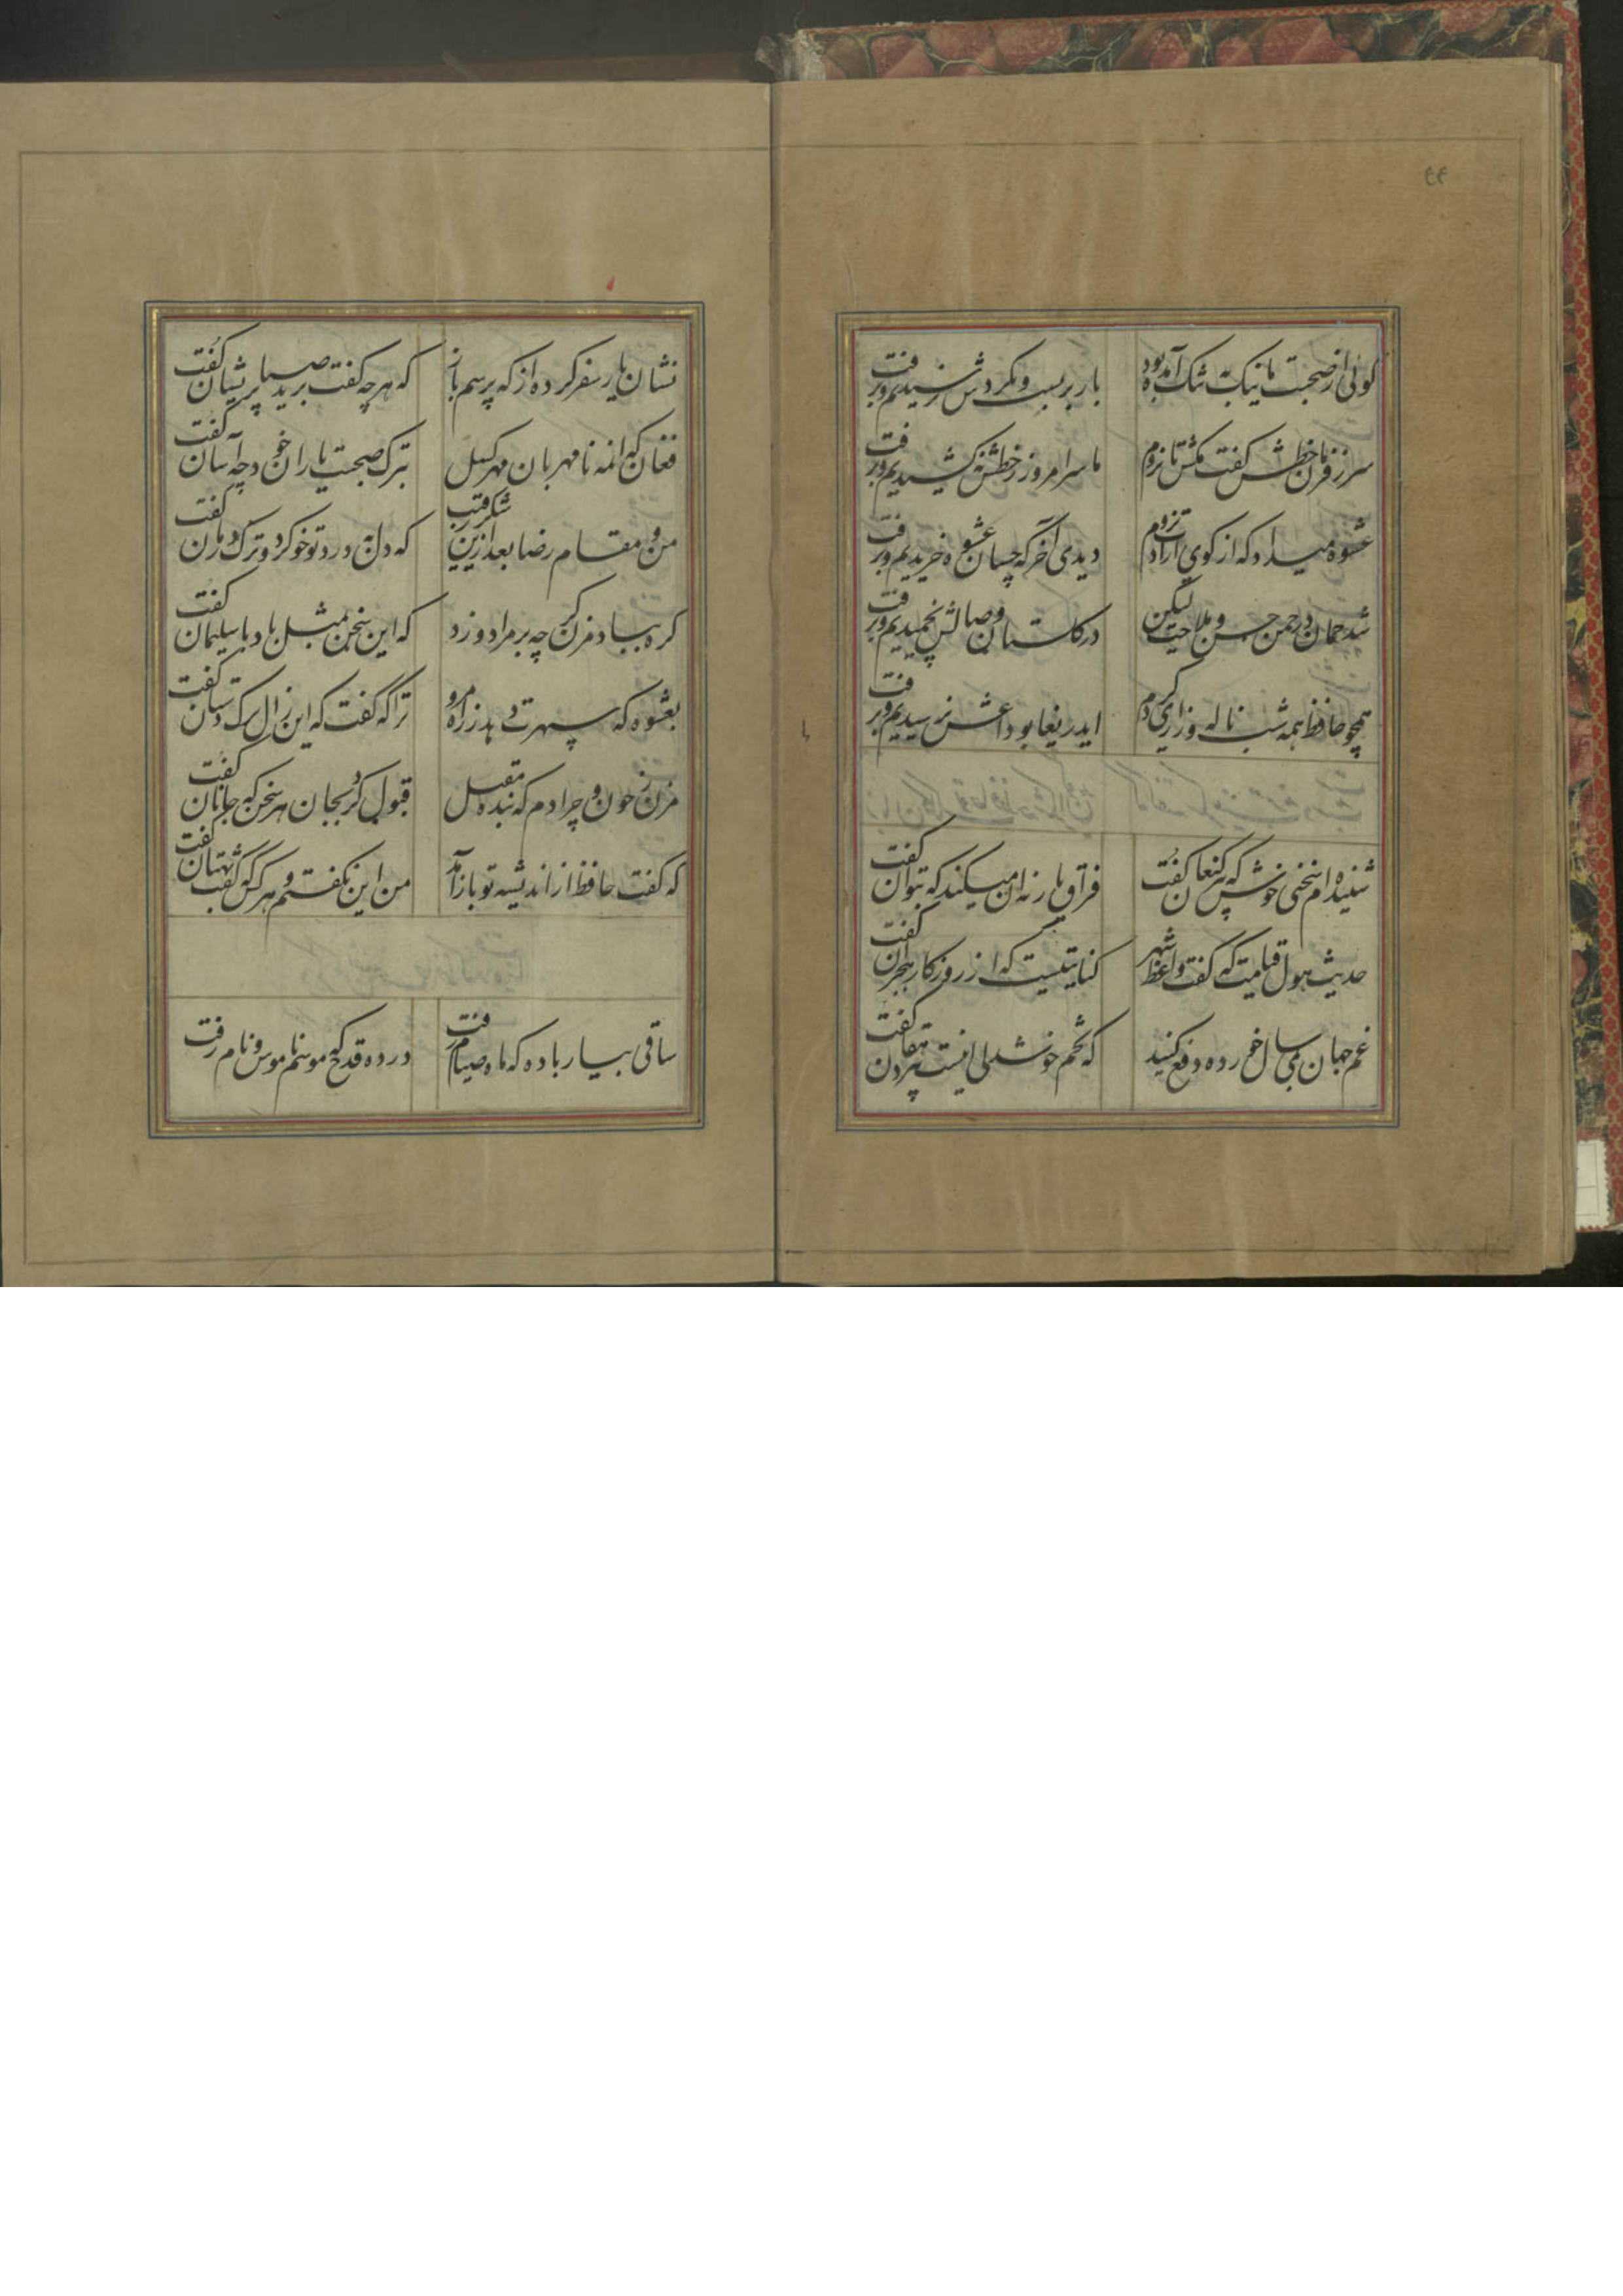 ۴۴
گوئی از صحبت ما نیک به تنک آمده بود بار بربست و بگردش نرسیدیم و برفت
سر ز فرمان خطش گفت مکش تا نروم ما سر امروز ز خطش نکشیدیم و برفت
عشوه میداد که از کوی ارادت نروم دیدی آخر که چسان عشوه خریدیم و برفت
شد چمان در چمن حسن و ملاحت لیکن در گلستان وصالش نچمیدیم و برفت
همچو حافظ همه شب ناله و زاری کردم ایدریغا بوداعش نرسیدیم و برفت
شنیده‌ام سخنی خوش که پیر کنعان گفت فراق یار نه آن میکند که بتوان گفت
حدیث هول قیامت که گفت واعظ شهر کنایتیست که از روزگار هجران گفت
غم جهان بمی سال خورده دفع کنید که تخم خوشدلی اینست پیر دهقان گفت
نشان یار سفر کرده از که پرسم باز که هرچه گفت برید صبا پریشان گفت
فغان که انمه نامهربان مهر گسل بترک صحبت یاران خود چه آسان گفت
من و مقام رضا بعد ازین و شکر رقیب که دل به درد تو خو کرد و ترک درمان گفت
گره بباد مزن گرچه بر مراد وزد که این سخن بمثل باد با سلیمان گفت
بعشوه که سپهرت دهد ز راه مرو ترا که گفت که این زال ترک دستان گفت
مزن ز چون و چرا دم که بنده مقبل قبول کرد بجان هر سخن که جانان گفت
که گفت حافظ از اندیشه تو باز آمد من این نگفته‌ام و هر کس که گفت بهتان گفت
ساقی بیار باده که ماه صیام رفت در ده قدح که موسم ناموس و نام رفت